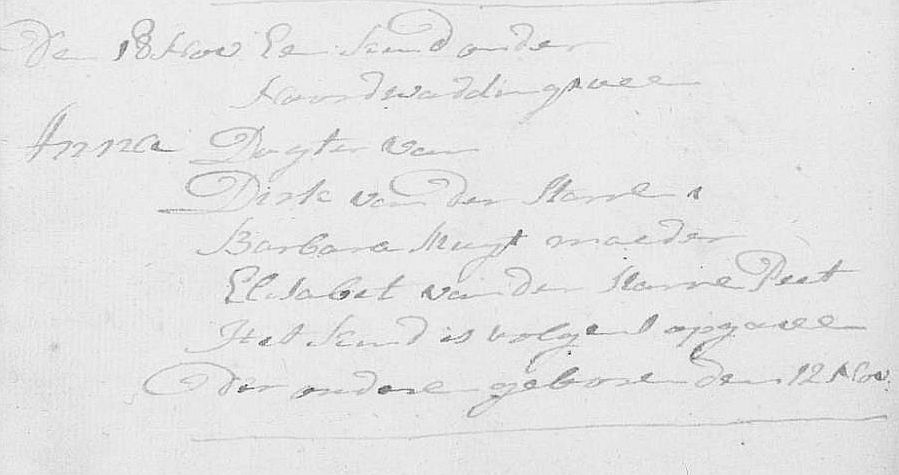 Den 18 Nov Een kind onder
Noordwaddingsveen
Anna Dogter van
Dirk van der Starre
Barbara Muyt moeder
Elisabet van der Starre Peet
Het kind is volgens opgaven
der ouders geboren den 12 Nov